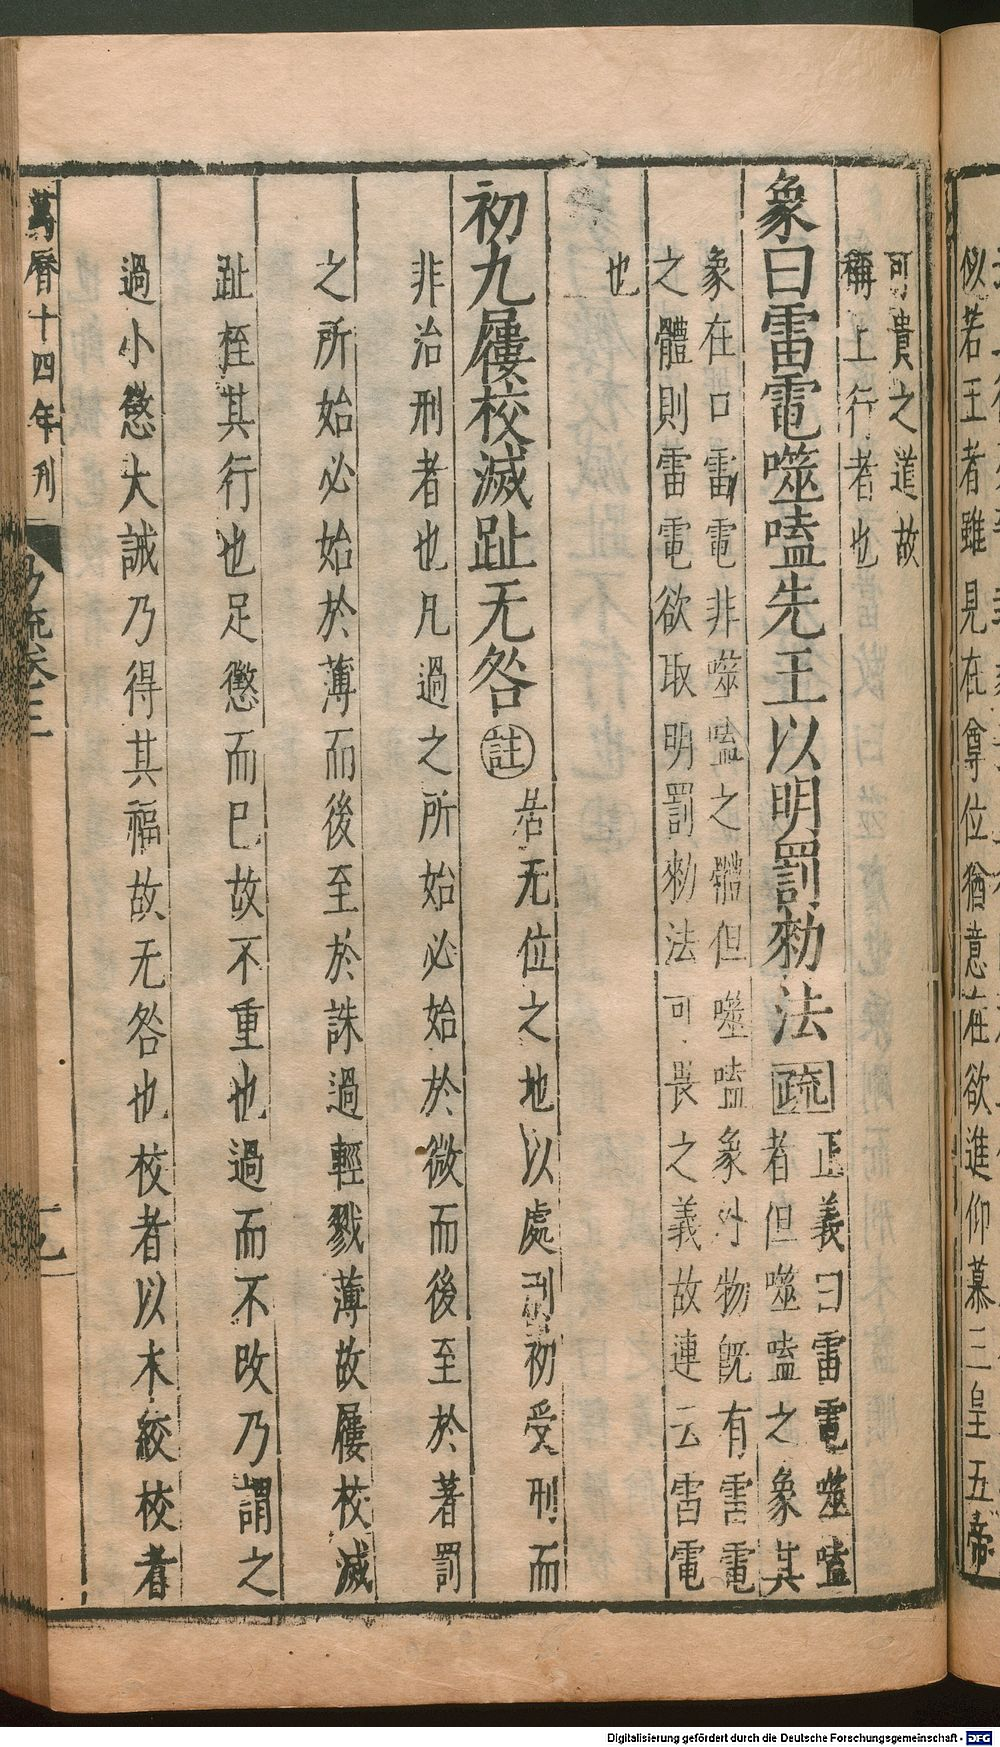 可貴之道故
稱上行者也
象曰雷電噬嗑先王以明罰勑法疏
正義曰雷電噬嗑
者但噬嗑之象其
象在口雷電非噬嗑之體但噬嗑象外物旣有雷電
之體則雷電欲取明罰勑法可畏之義故連云雷電
也
初九屨校滅趾无咎註居无位之地以處刑初受刑而
非治刑者也凡過之所始必始於微而後至於著罰
之所始必始於薄而後至於誅過輕戮薄故屨校滅
趾桎其行也足懲而已故不重也過而不改乃謂之
過小懲大誡乃得其福故无咎也校者以木絞校者
萬曆十四年刊
卷三
似若王者雖見在尊位猶意在欲進仰慕三皇五帝
Digitalisierung gefördert durch die Deutsche Forschungsgemeinschaft - DFG